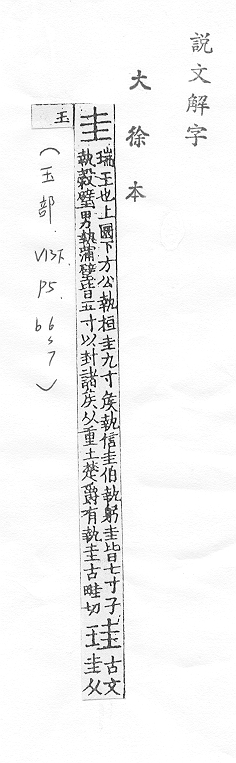 說文解字
大徐本
圭
瑞玉也上圜下方公執桓圭九寸矦執信圭伯執躬圭皆七寸子
執穀璧男執蒲璧皆五寸以封諸矦从重土楚爵有執圭古畦切
珪
古文
圭从
玉
(土部. V13下. P5. b 6~7)